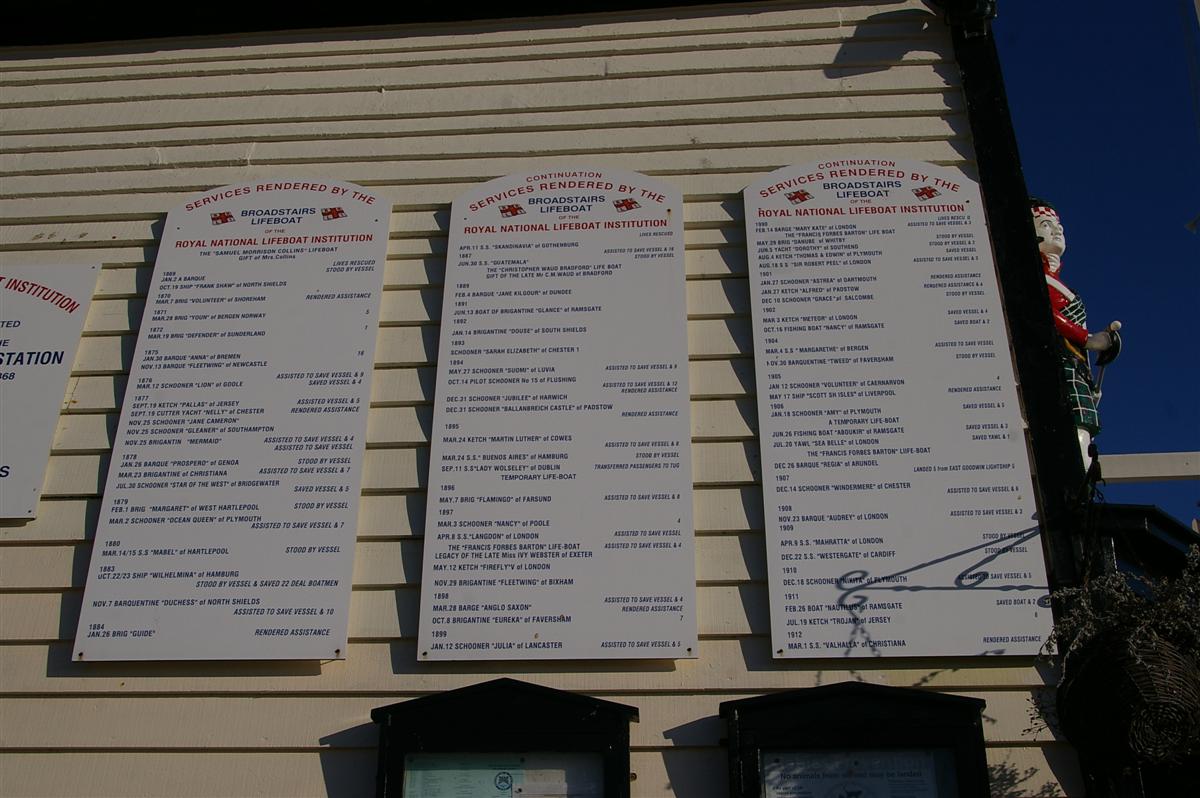 T INSTITUTION
TED
HE
STATION
868
S
SERVICES RENDERED BY THE
BROADSTAIRS
LIFEBOAT
OF THE
ROYAL NATIONAL LIFEBOAT INSTITUTION
THE "SAMUEL MORRISON COLLINS" LIFEBOAT
GIFT of Mrs.Collins
LIVES RESCUED
1869 STOOD BY VESSEL
JAN.2 A BARQUE
OCT.19 SHIP "FRANK SHAW" of NORTH SHIELDS
1870
MAR.7 BRIG "VOLUNTEER" of SHOREHAM RENDERED ASSISTANCE
1871
MAR.28 BRIG "YOUN" of BERGEN NORWAY 5
1872
MAR.19 BRIG "DEFENDER" of SUNDERLAND 1
1875
JAN.30 BARQUE "ANNA" of BREMEN 16
NOV.13 BARQUE "FLEETWING" of NEWCASTLE
1876 ASSISTED TO SAVE VESSEL & 9
MAR.12 SCHOONER "LION" of GOOLE SAVED VESSEL & 4
1877
SEPT.19 KETCH "PALLAS" of JERSEY ASSISTED TO SAVE VESSEL & 5
SEPT.19 CUTTER YACHT "NELLY" of CHESTER RENDERED ASSISTANCE
NOV.25 SCHOONER "JANE CAMERON"
NOV.25 SCHOONER "GLEANER" of SOUTHAMPTON
NOV.25 BRIGANTIN "MERMAID" ASSISTED TO SAVE VESSEL & 4
1878 ASSISTED TO SAVE VESSEL
JAN.26 BARQUE "PROSPERO" of GENOA STOOD BY VESSEL
MAR.23 BRIGANTINE of CHRISTIANA ASSISTED TO SAVE VESSEL & 7
JUL.30 SCHOONER "STAR OF THE WEST" of BRIDGEWATER SAVED VESSEL & 5
1879
FEB.1 BRIG "MARGARET" of WEST HARTLEPOOL STOOD BY VESSEL
MAR.2 SCHOONER "OCEAN QUEEN" of PLYMOUTH
ASSISTED TO SAVE VESSEL & 7
1880
MAR.14/15 S.S "MABEL" of HARTLEPOOL STOOD BY VESSEL
1883
OCT.22/23 SHIP "WILHELMINA" of HAMBURG
STOOD BY VESSEL & SAVED 22 DEAL BOATMEN
NOV.7 BARQUENTINE "DUCHESS" of NORTH SHIELDS
ASSISTED TO SAVE VESSEL & 10
1884
JAN.26 BRIG "GUIDE" RENDERED ASSISTANCE
CONTINUATION
SERVICES RENDERED BY THE
BROADSTAIRS
LIFEBOAT
OF THE
ROYAL NATIONAL LIFEBOAT INSTITUTION
LIVES RESCUED
APR.11 S.S. "SKANDINAVIA" of GOTHENBURG
1887 ASSISTED TO SAVE VESSEL & 16
JUN.30 S.S. "GUATEMALA" STOOD BY VESSEL
THE "CHRISTOPHER WAUD BRADFORD" LIFE BOAT
GIFT OF THE LATE Mr C.M.WAUD of BRADFORD
1889
FEB.4 BARQUE "JANE KILGOUR" of DUNDEE
1891
JUN.13 BOAT OF BRIGANTINE "GLANCE" of RAMSGATE
1892
JAN.14 BRIGANTINE "DOUSE" of SOUTH SHIELDS
1893
SCHOONER "SARAH ELIZABETH" of CHESTER 1
1894
MAY.27 SCHOONER "SUOMI" of LUVIA ASSISTED TO SAVE VESSEL & 9
OCT.14 PILOT SCHOONER No 15 of FLUSHING
ASSISTED TO SAVE VESSEL & 12
DEC.31 SCHOONER "JUBILEE" of HARWICH RENDERED ASSISTANCE
DEC.31 SCHOONER "BALLANBREICH CASTLE" of PADSTOW
RENDERED ASSISTANCE
1895
MAR.24 KETCH "MARTIN LUTHER" of COWES ASSISTED TO SAVE VESSEL & 8
MAR.24 S.S." BUENOS AIRES" of HAMBURG STOOD BY VESSEL
SEP.11 S.S"LADY WOLSELEY" of DUBLIN TRANSFERRED PASSENGERS TO TUG
TEMPORARY LIFE-BOAT
1896
MAY.7 BRIG "FLAMINGO" of FARSUND ASSISTED TO SAVE VESSEL & 8
1897
MAR.3 SCHOONER "NANCY" of POOLE 4
APR.8 S.S."LANGDON" of LONDON ASSISTED TO SAVE VESSEL
THE "FRANCIS FORBES BARTON" LIFE-BOAT ASSISTED TO SAVE VESSEL & 4
LEGACY OF THE LATE Miss IVY WEBSTER of EXETER
MAY.12 KETCH "FIREFLY"V of LONDON
NOV.29 BRIGANTINE "FLEETWING" of BIXHAM
1898
MAR.28 BARGE "ANGLO SAXON" ASSISTED TO SAVE VESSEL & 4
OCT.8 BRIGANTINE "EUREKA" of FAVERSHAM RENDERED ASSISTANCE
7
1899 6
JAN.12 SCHOONER "JULIA" of LANCASTER ASSISTED TO SAVE VESSEL & 5
CONTINUATION
SERVICES RENDERED BY THE
BROADSTAIRS
LIFEBOAT
OF THE
ROYAL NATIONAL LIFEBOAT INSTITUTION
1900
FEB.14 BARGE "MARY KATE" of LONDON ASSISTED TO SAVE VESSEL & 3
THE "FRANCIS FORBES BARTON" LIFE BOAT
MAY.29 BRIG "DANUBE of WHITBY STOOD BY VESSEL
JUN.5 YACHT "DOROTHY" of SOUTHEND STOOD BY VESSEL & 2
AUG.4 KETCH "THOMAS & EDWIN" of PLYMOUTH SAVED VESSEL
AUG.18 S.S "SIR ROBERT PEEL" of LONDON ASSISTED TO SAVE VESSEL & 3
1901
JAN.27 SCHOONER "ASTREA" of DARTMOUTH RENDERED ASSISTANCE
JAN.27 KETCH "ALFRED" of PADSTOW RENDERED ASSISTANCE & 4
DEC 10 SCHOONER "GRACE" of SALCOMBE STOOD BY VESSEL
1902
MAR 3 KETCH "METEOR" of LONDON SAVED VESSEL & 4
OCT.16 FISHING BOAT "NANCY" of RAMSGATE SAVED BOAT & 2
1904
MAR.4 S S " MARGARETHE" of BERGEN ASSISTED TO SAVE VESSEL
NOV.30 BARQUENTINE "TWEED" of FAVERSHAM STOOD BY VESSEL
1905
JAN 12 SCHOONER "VOLUNTEER" of CAERNARVON 4
MAY 17 SHIP "SCOTT SH ISLES" of LIVERPOOL RENDERED ASSISTANCE
1906
JAN.18 SCHOONER "AMY" of PLYMOUTH SAVED VESSEL & 5
A TEMPORARY LIFE-BOAT
JUN.26 FISHING BOAT "ABOUKIR" of RAMSGATE SAVED VESSEL & 3
JUL.20 YAWL "SEA BELLS" of LONDON SAVED YAWL & 1
THE "FRANCIS FORBES BARTON" LIFE-BOAT
DEC 26 BARQUE "REGIA" of ARUNDEL
LANDED 5 from EAST GOODWIN LIGHTSHIP 5
1907
DEC.14 SCHOONER "WINDERMERE" of CHESTER ASSISTED TO SAVE VESSEL & 6
1908
NOV.23 BARQUE "AUDREY" of LONDON ASSISTED TO SAVE VESSEL & 3
1909
APR.9 S.S. "MAHRATTA" of LONDON STOOD BY VESSEL
DEC.22 S.S. "WESTERGATE" of CARDIFF STOOD BY VESSEL
1910
DEC.18 SCHOONER "NIKITA" of PLYMOUTH ASSISTED TO SAVE VESSEL & 5
1911
FEB.26 BOAT "NAUTILUS" of RAMSGATE SAVED BOAT & 2
JUL.19 KETCH "TROJAN" of JERSEY 8
1912
MAR.1 S.S. "VALHALLA" of CHRISTIANA RENDERED ASSISTANCE
No animals from may be landed